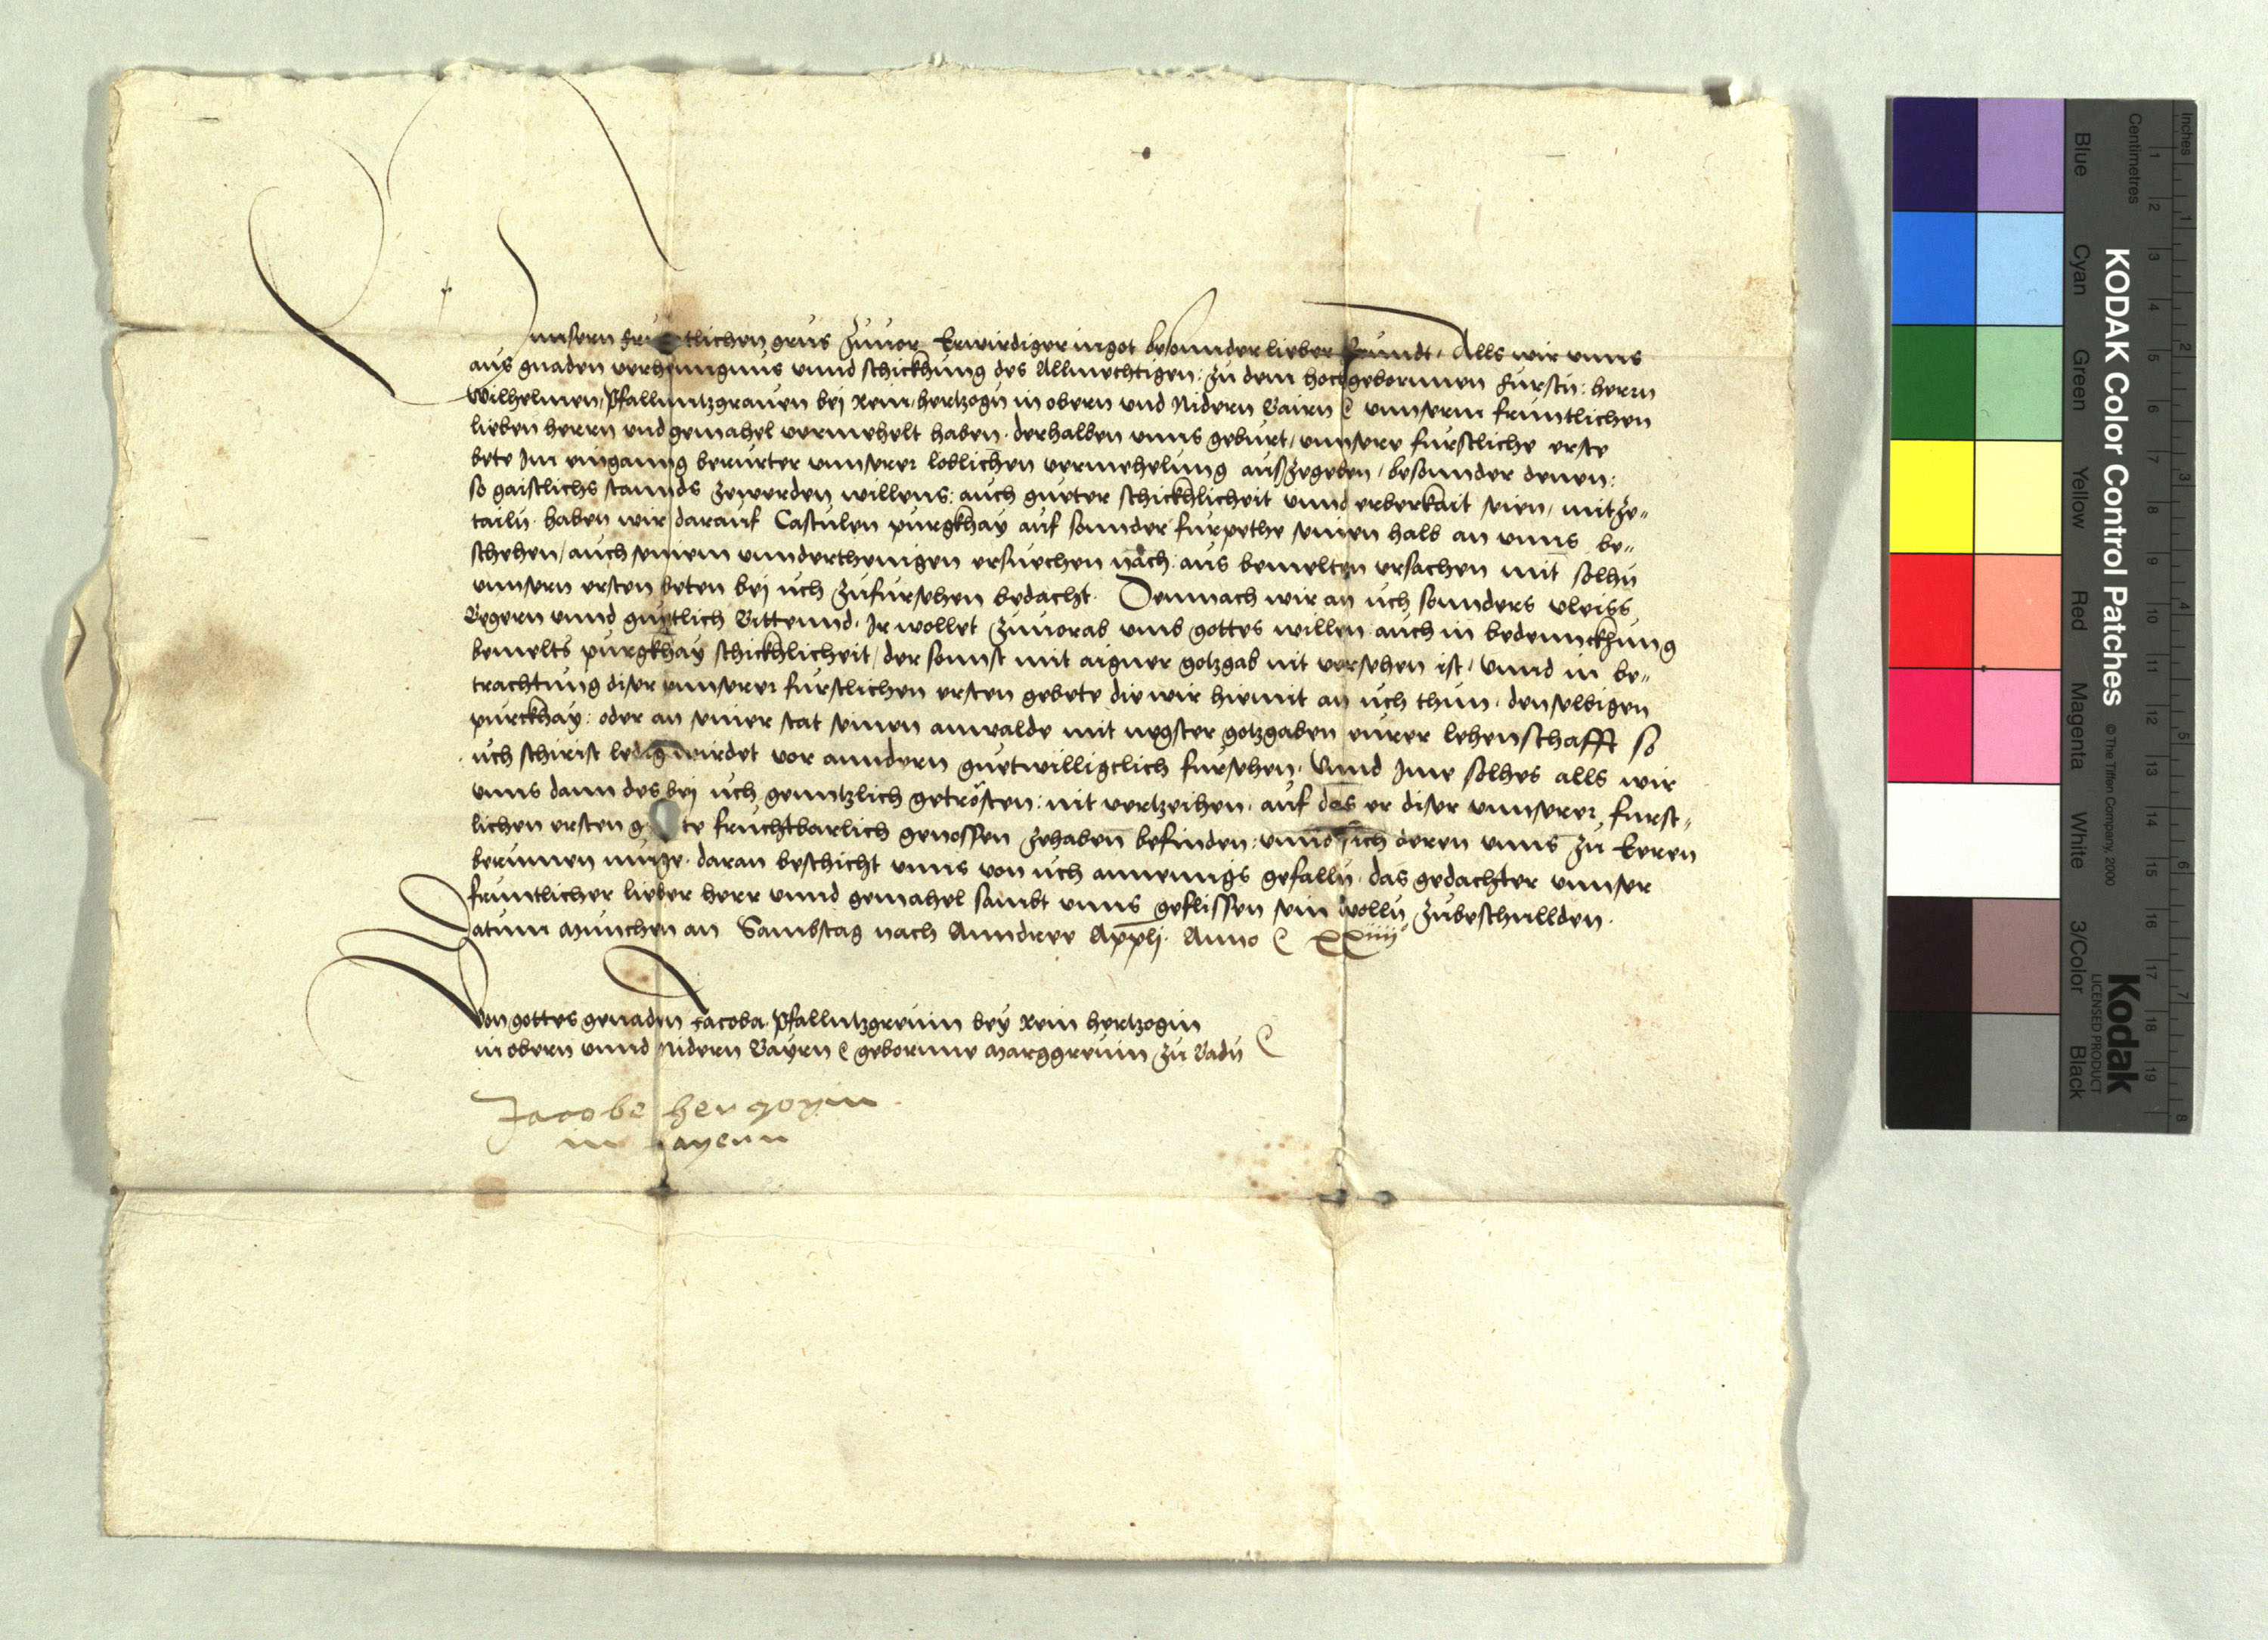 unnsern fruntlichen grus zuuor Erwirdiger in got besonnder lieber frundt, Alls wir unns
aus gnaden verhenngnus unnd schickhung des Allmechtigen: zu dem hochgebornnen fursten: herrn
Wilhelmen, Pfallnntzgrauen bei Rein, hertzogn in obern und Nidern Bairn ec unnserm fruntlichen
lieben herrn und gemahel vermehelt haben. derhalben unns geburt, unnsere furstliche erste
bete Im einganng berurter unnserer loblichen vermehelung außzegeben, besonnder denen:
so gaistlichs stannds zewerden willens: auch gueter schickhlicheit unnd erberkait seien, mitze„
tailn. haben wir darauf Castulen purgkhay auf sonnder furpethe seinen halb an unns be„
schehen, auch seinem unnderthenigen ersuechen nach. aus bemelten ursachen mit solhn
unnsern ersten beten bei uch zufursehen bedacht. Demnach wir an uch sonnders vleiss
Begern unnd guetlich Bittennd. Ir wollet zuuorab umb gottes willen. auch in bedennckhung
bemelts purgkhay schickhlicheit, der sonnst mit aigner gotzgab nit versehen ist, unnd in be„
trachtung diser unnserer furstlichen ersten gebete die wir hiemit an uch thun. denselbigen
purckhay: oder an seiner stat seinen anwalde mit negster gotzgaben eurer lehenschafft so
uch schirist ledig wirdet vor anndern guetwilligclich fursehen. Unnd Ime solhes alls wir
unns dann des bei uch genntzlich getrösten: nit vertzeihen. auf das er diser unnserer furst„
lichen ersten g te fruchtbarlich genossen zehaben befinden: unnd sich deren unns zu Eeren
berumen muge. daran beschicht unns von uch annemigs gefalln. das gedachter unnser
fruntlicher lieber herr unnd gemahel sambt unns geflissen sein wolln zubeschullden.
Datum Munchen an Sambstag nach Anndree Appli. Anno ec XXiiii
Von gottes genaden Jacoba. Pfallntzgreuin bey Rein hertzogin
in obern unnd Nidern Bayrn ec gebornne Marggreuin zu Badn ec
Jacobe herczogin
in bayern
KODAK Color Control Patches © The Tiffen Company, 2000
Kodak
LICENSED PRODUCT
Blue Cyan Green Yellow Red Magenta White 3/Color Black
Inches 1 2 3 4 5 6 7 8
Centimetres 1 2 3 4 5 6 7 8 9 10 11 12 13 14 15 16 17 18 19